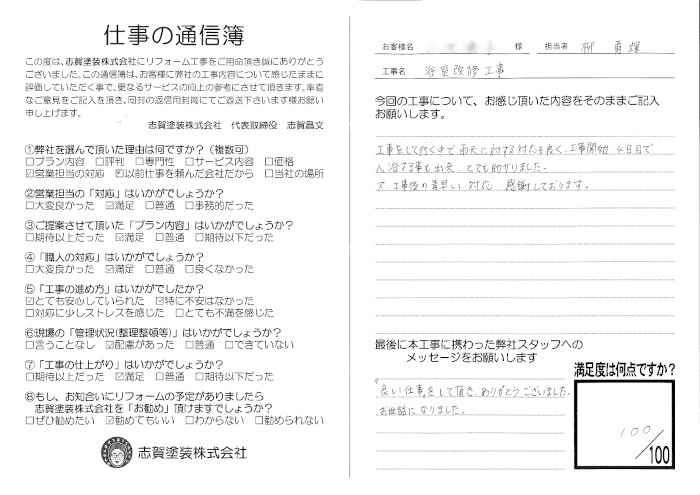 仕事の通信簿
この度は、志賀塗装株式会社にリフォーム工事をご用命頂き誠にありがとう
ございました。この通信簿は、お客様に弊社の工事内容について感じたままに
評価していただく事で、更なるサービスの向上の参考にさせて頂きます。率直
なご意見をご記入を頂き、同封の返信用封筒にてご返送下さいます様お願い
申し上げます。
志賀塗装株式会社 代表取締役 志賀昌文
①弊社を選んで頂いた理由は何ですか？(複数可)
□プラン内容 □評判 □専門性 □サービス内容 □価格
☑営業担当の対応 ☑以前仕事を頼んだ会社だから □当社の場所
②営業担当の「対応」はいかがでしょうか？
□大変良かった ☑満足 □普通 □事務的だった
③ご提案させて頂いた「プラン内容」はいかがでしょうか？
□期待以上だった ☑満足 □普通 □期待以下だった
④「職人の対応」はいかがでしょうか？
□大変良かった ☑満足 □普通 □良くなかった
⑤「工事の進め方」はいかがでしたか？
☑とても安心していられた ☑特に不安はなかった
□対応に少しストレスを感じた □とても不満を感じた
⑥現場の「管理状況(整理整頓等)」はいかがでしょうか？
□言うことなし ☑配慮があった □普通 □できていない
⑦「工事の仕上がり」はいかがでしょうか？
□期待以上だった ☑満足 □普通 □期待以下だった
⑧もし、お知合いにリフォームの予定がありましたら
志賀塗装株式会社を「お勧め」頂けますでしょうか？
□ぜひ勧めたい ☑勧めてもいい □わからない □勧められない
志賀塗装株式会社
お客様名 様 担当者 柳 勇輝
工事名 浴室改修工事
今回の工事について、お感じ頂いた内容をそのままご記入
お願いします。
工事をして行く中で雨天に対する対応も良く、工事開始4日目で
入浴する事も出来、とても助かりました。
又、工事後の素早い対応 感謝しております。
最後に本工事に携わった弊社スタッフへの
メッセージをお願いします
良い仕事をして頂き、ありがとうございました。
お世話になりました。
満足度は何点ですか？
100
/100